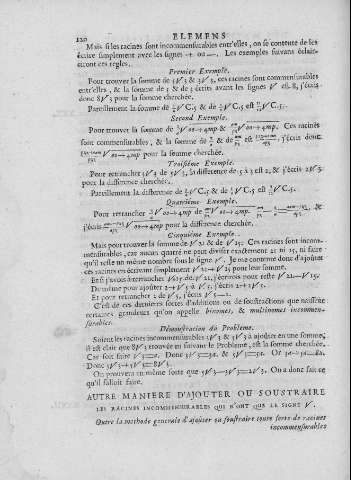 120 ELEMENS
Mais si les racines sont incommensurables entr'elles, on se contente de les
écrire simplement avec les signes + ou —. Les exemples suivans éclair-
ciront ces regles.
Premier Exemple.
Pour trouver la somme de 5√3 & 3√3, ces racines sont commensurables
entr'elles, & la somme de 5 & de 3 écrits avant les signes √ est 8, j'écris
donc 8√3 pour la somme cherchée.
Pareillement la somme de √C.5 & de √C.5 est √C.5.
Second Exemple.
Pour trouver la somme de √oo+4mp & √oo+4mp. Ces racines
sont commensurables, & la somme de & de est j'écris donc
√oo+4mp pour la somme cherchée.
Troisiéme Exemple.
Pour retrancher 3√3 de 5√3, la difference de 5 à 3 est 2, & j'écris 2√3
pour la difference cherchée.
Pareillement la difference de √C.5 & de √C.5 est √C.5.
Quatriéme Exemple.
Pour retrancher √oo+4mp de √oo+4mp. &
j'écris √oo+4mp pour la difference cherchée.
Cinquiéme Exemple.
Mais pour trouver la somme de √21 & de √15; Ces racines sont incom-
mensurables, car aucun quarré ne peut diviser exactement 21 ni 15, ni faire
qu'il reste un même nombre sous le signe √. Je me contente donc d'ajouter
ces racines en écrivant simplement pour leur somme.
Et si j'avois à retrancher √15 de j'écrirois pour reste
De même pour ajouter 2 + √3, j'écris 2+√3.
Et pour retrancher 2 de √5, j'écris √5—2.
C'est de ces dernieres sortes d'additions ou de soustractions que naissent
certaines grandeurs qu'on appelle binomes, & multinomes incommen-
surables.
Démonstration du Probleme.
Soient les racines incommensurables 5√3 & 3√3 à ajouter en une somme,
il est clair que 8√3 trouvée en suivant le Probleme, est la somme cherchée.
Car soit faite √3=a. Donc 5√3=5a. & 3√3=3a. Or 5a+3a=8a.
Donc 5√3+3√3=8√3.
On prouvera en même sorte que 5√3—3√3=2√3. On a donc fait ce
qu'il falloit faire.
AUTRE MANIERE D'AJOUTER OU SOUSTRAIRE
LES RACINES INCOMMENSURABLES QUI N'ONT QUE LE SIGNE √.
Outre la methode generale d'ajouter ou soustraire toute sorte de racines
incommensurables